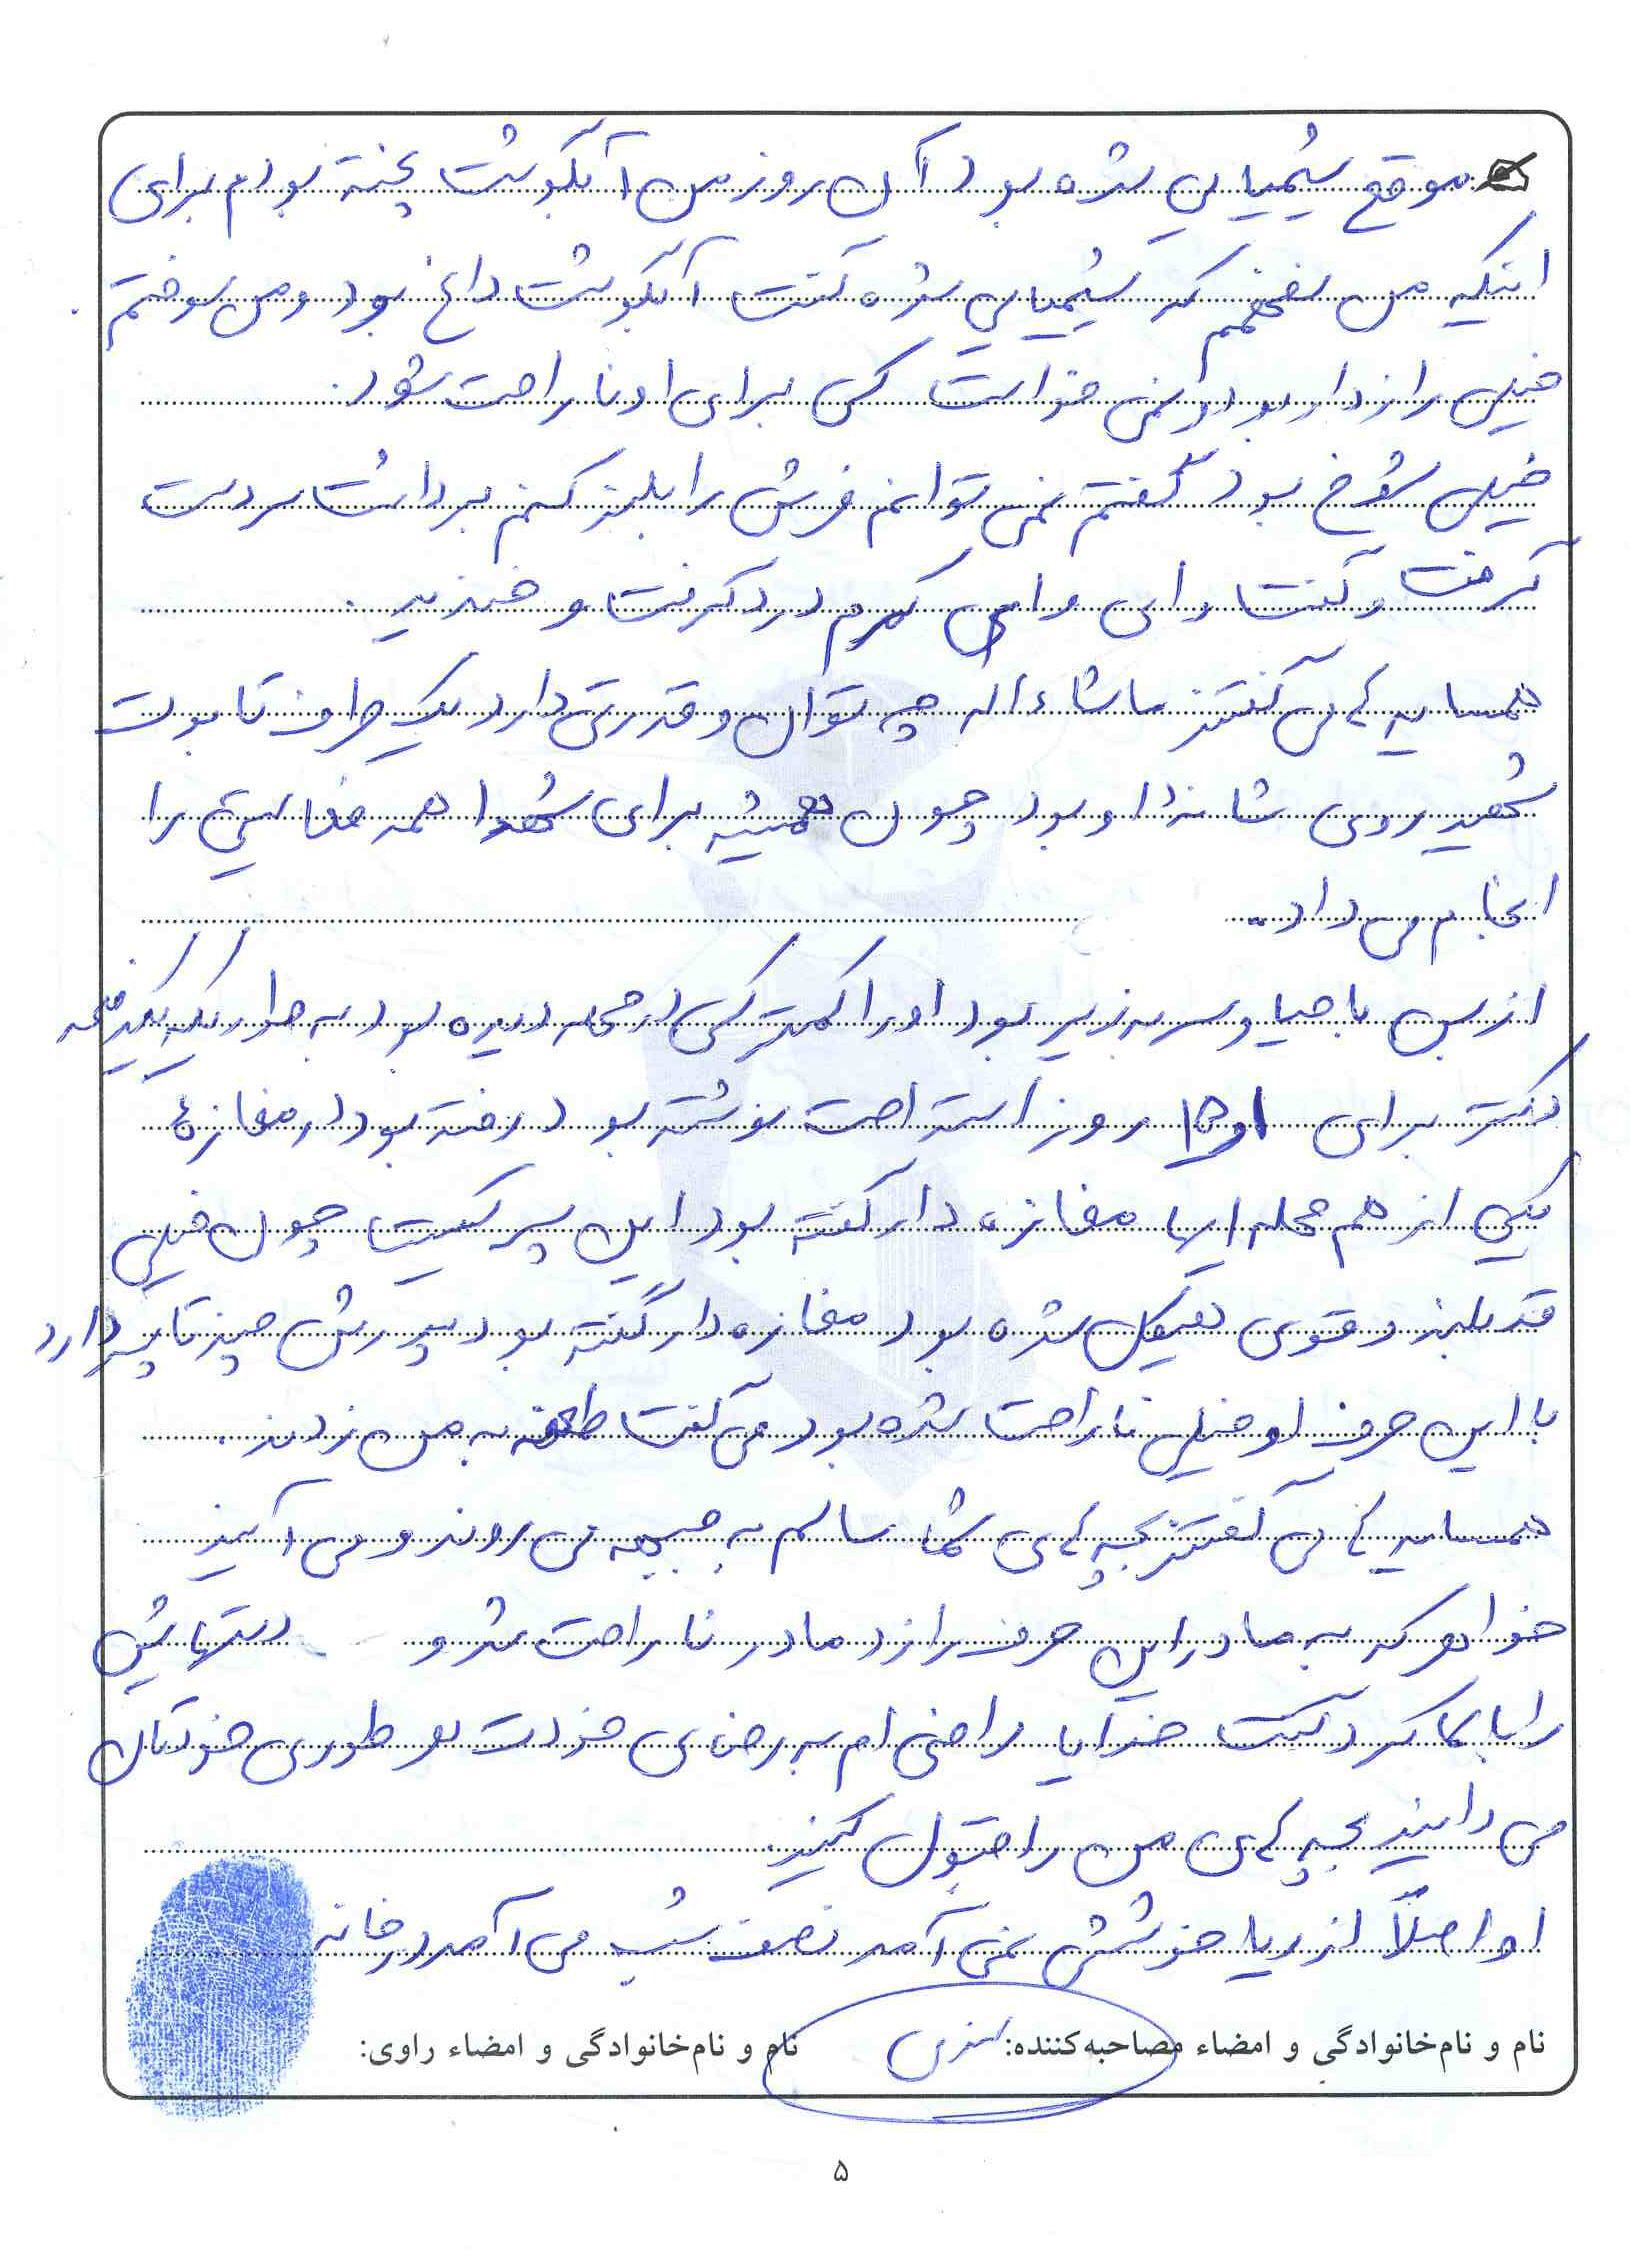 موقع شیمیایی شده بود آن روز من آبگوشت پخته بودم برای
اینکه من نفهمم که شیمیایی شده گفت آبگوشت داغ بود و من سوختم.
خیلی رازدار بود و نمی خواست کسی برای او ناراحت شود.
خیلی شوخ بود گفتم نمی توانم فرش را بلند کنم برداشت سر دست
گرفت و گفت وای وای کمرم درد گرفت و خندید.
همسایه ها می گفتند ماشاءاله چه توان و قدرتی دارد یک طرف تابوت
شهید روی شانه او بود چون همیشه برای شهدا همه را
انجام می داد.
از بس با حیا و سر به زیر بود او را کمتر کسی در محله دیده بود به طوریکه یکدفعه
دکتر برای او ۱۵ روز استراحت نوشته بود رفته بود در مغازهٔ
یکی از هم محله ایها مغازه دار گفته بود این پسر کیست چون خیلی
قد بلند و قوی هیکل شده بود مغازه دار گفته بود پدرش چند تا پسر دارد
با این حرف او خیلی ناراحت شده بود می گفت طعنه به من زدند.
همسایه ها می گفتند بچه های شما سالم به جبهه می روند و می آیند
خواهر که به مادر این حرف را زد مادر ناراحت شد و دستهایش
را بالا کرد گفت خدایا راضی ام به رضای خودت هر طوری خودتان
می دانید بچه های من را قبول کنید.
او اصلاً از ریا خوشش نمی آمد نصف شب می آمد در خانه
نام و نام‌خانوادگی و امضاء مصاحبه‌کننده: نام و نام‌خانوادگی و امضاء راوی:
۵